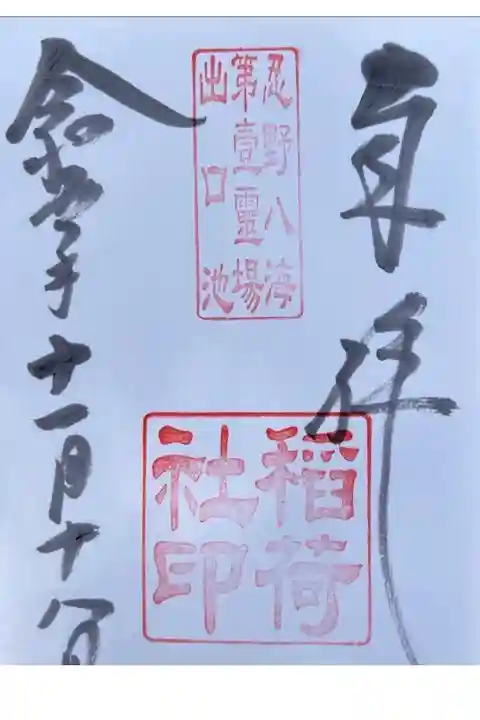 奉拝
忍野八海
第壹靈場
出口池
稲荷
社印
令和 年十一月十八日